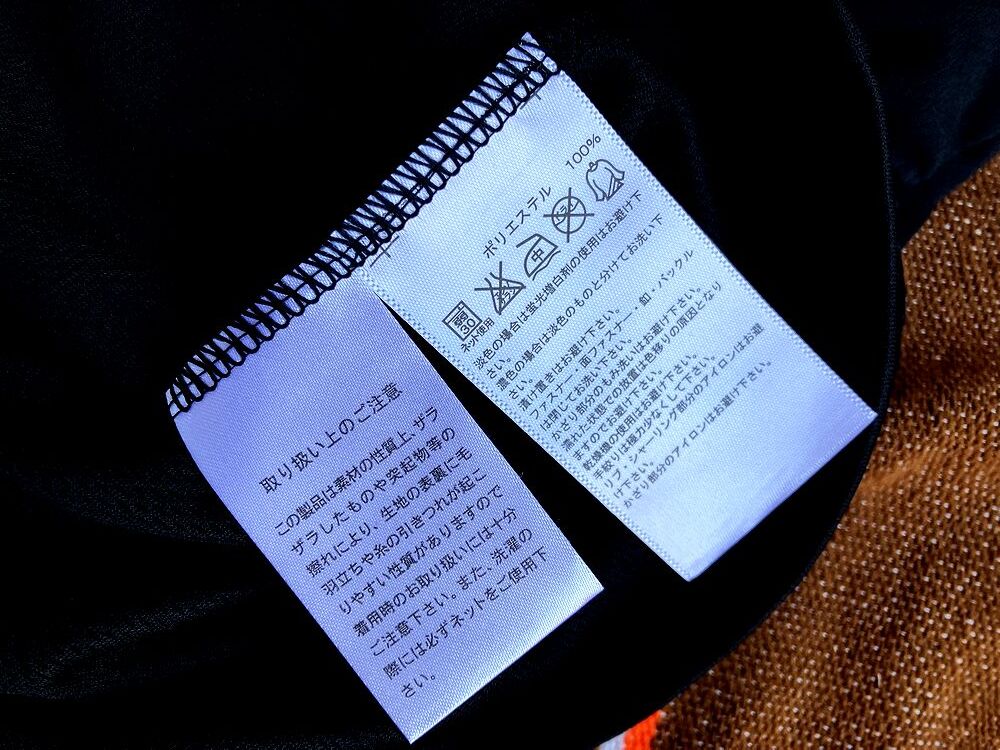 取り扱い上のご注意
この製品は素材の性質上、ザラ
ザラしたものや突起物等の
擦れにより、生地の表裏に毛
羽立ちや糸の引きつれが起こ
りやすい性質がありますので
着用時のお取り扱いには十分
ご注意下さい。また、洗濯の
際には必ずネットをご使用下
さい。
ポリエステル 100%
弱
30
ネット使用
エンソサラシ
中
ドライ
淡色の場合は蛍光増白剤の使用はお避け下
さい。
濃色の場合は淡色のものと分けてお洗い下
さい。
漬け置きはお避け下さい。
ファスナー・面ファスナー・釦・バックル
は閉じてお洗い下さい。
かざり部分のもみ洗いはお避け下さい。
濡れた状態での放置は色移りの原因となり
ますのでお避け下さい。
乾燥機の使用はお避け下さい。
手絞りは極力少なくして下さい。
リブ・シャーリング部分のアイロンはお避
け下さい。
かざり部分のアイロンはお避け下さい。